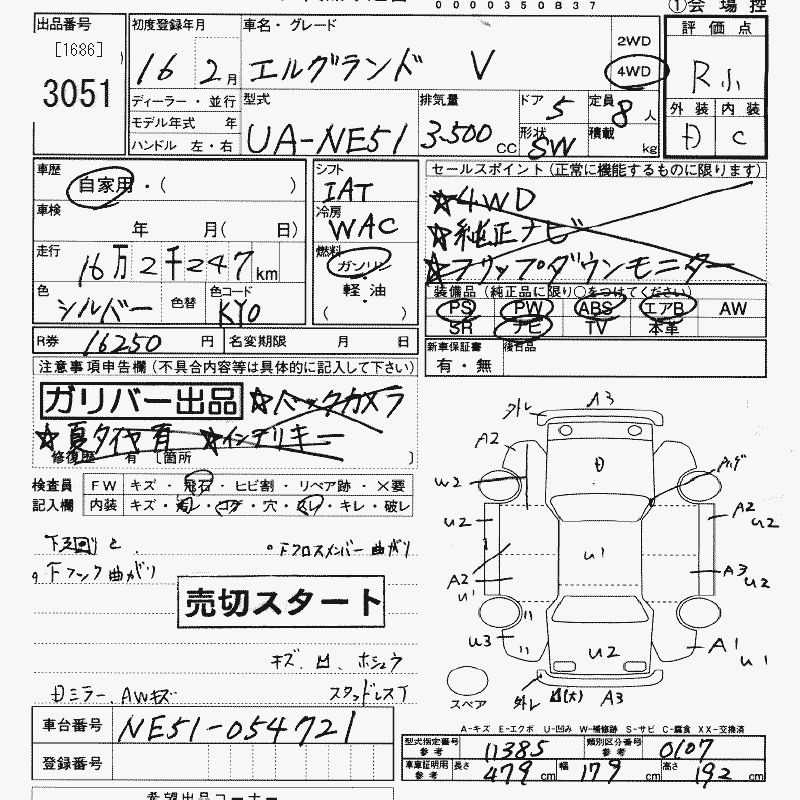 0 0 0 0 3 5 0 8 3 7
①会 場 控
出品番号
[1686]
3051
初度登録年月
16 2月
車名・グレード
エルグランド V
2WD
4WD
評 価 点
R 小
外 装 内 装
D C
ディーラー・並行
モデル年式 年
ハンドル 左・右
型式
UA-NE51
排気量
3.500 CC
ドア 5
定員 8 人
形状 SW
積載 kg
車歴
自家用・( )
車検
年 月( 日)
走行
16万2千247km
色
シルバー 色替
色コード
KY0
シフト
IAT
冷房
WAC
燃料
ガソリン
軽・油
( )
セールスポイント (正常に機能するものに限ります)
☆4WD
☆純正ナビ
☆フリップダウンモニター
装備品 (純正品に限り○をつけてください)
PS PW ABS エアB AW
SR ナビ TV 本革
新車保証書
有・無
後日品
R券 16250 円
名変期限 月 日
注意事項申告欄 (不具合内容等は具体的に記入して下さい)
ガリバー出品 ☆バックカメラ
☆夏タイヤ有 ☆インテリキー
修復歴 有 [箇所 ]
検査員
記入欄
FW キズ・飛石・ヒビ割・リペア跡・×要
内装 キズ・汚レ・コゲ・穴・スレ・キレ・破レ
下フロスメンバー曲がり
下フック曲がり
売切スタート
キズ、凹、ホシュウ
Dミラー、AWキズ
スタッドレスT
外レ A3
A2
D
W2
U2
A2
U2
U1
A2
U1
A3
U2
U3
U2
A1
U1
スペア
外レ 凹(大) A3
A-キズ E-エクボ U-凹み W-補修跡 S-サビ C-腐食 XX-交換済
車台番号 NE51-054721
登録番号
型式指定番号
参考
11385
類別区分番号
参考
0107
車庫証明用
参考
長さ 479 cm 幅 179 cm 高さ 192 cm
希望出品コーナー